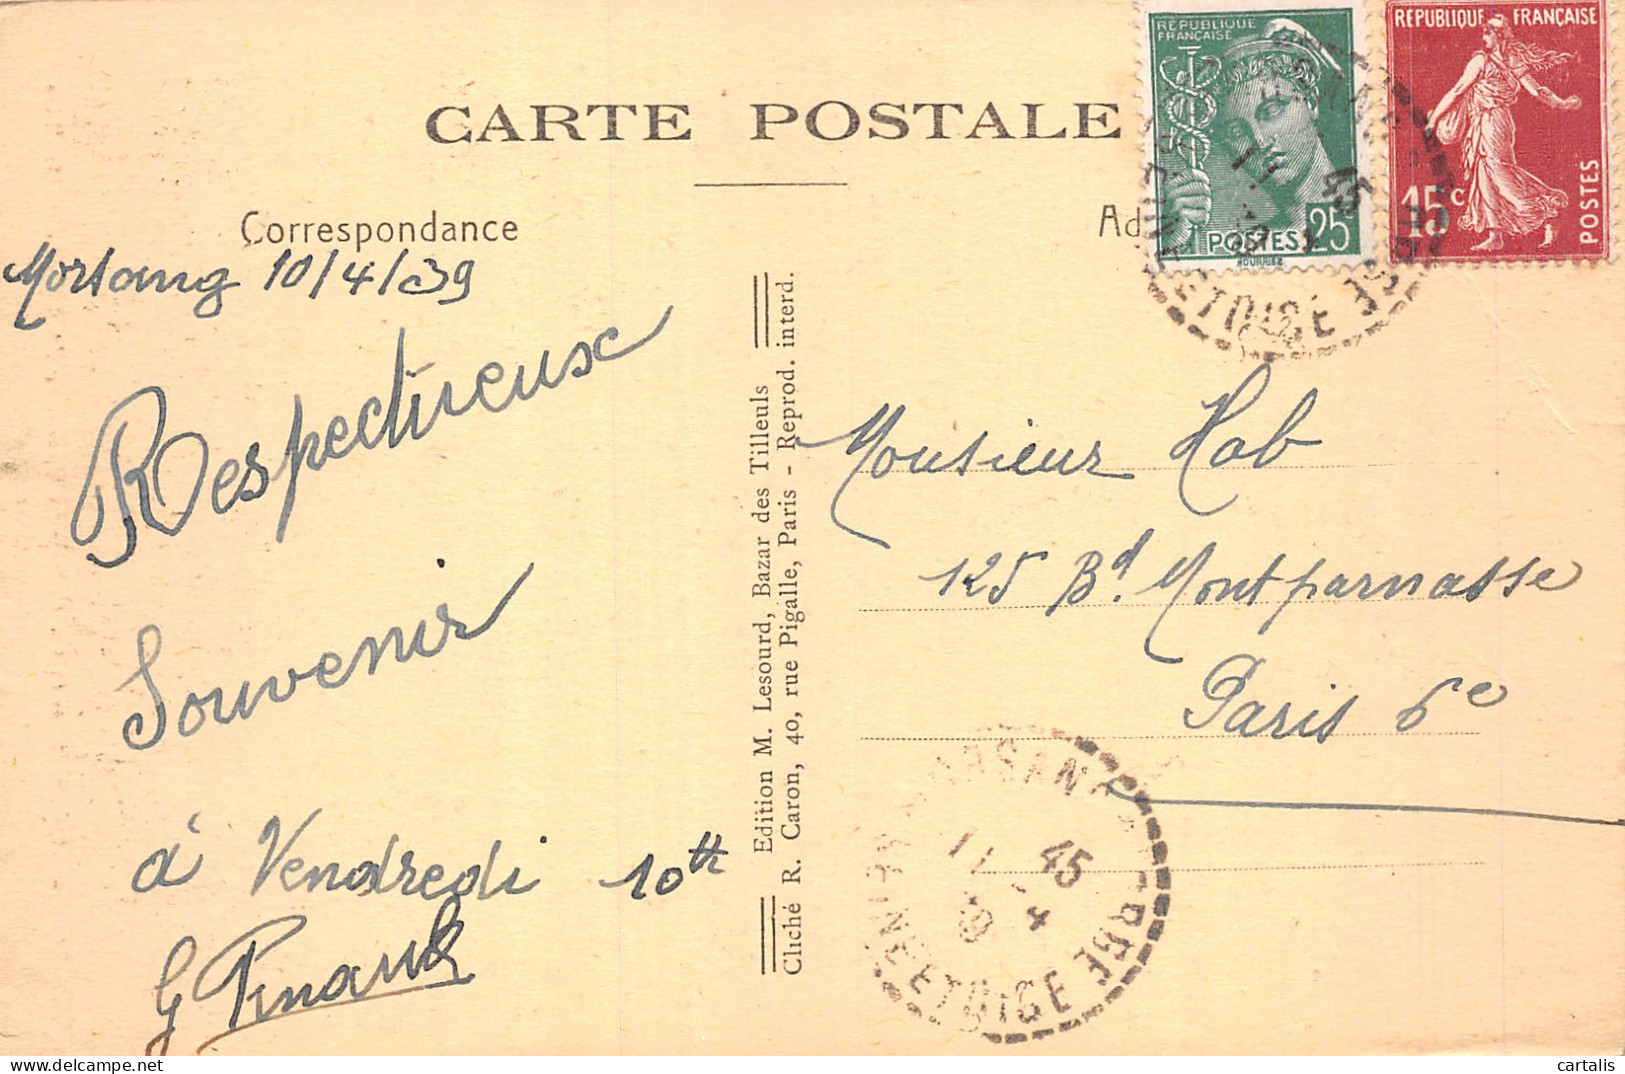 CARTE POSTALE
Correspondance
Ad
REPUBLIQUE
FRANÇAISE
POSTES 25
REPUBLIQUE FRANÇAISE
15c
POSTES
Morsang 10/4/39
Respectueux
Souvenir
à Vendredi 10th
Edition M. Lesourd, Bazar des Tilleuls
Cliché R. Caron, 40, rue Pigalle, Paris - Reprod. interd.
Monsieur Hab
125 Bd Montparnasse
Paris 6e
SEINE ET OISE
11 45
4
39
MORSANG S ORGE
SEINE ET OISE
11 45
4
39
cartalis
delcampe.net